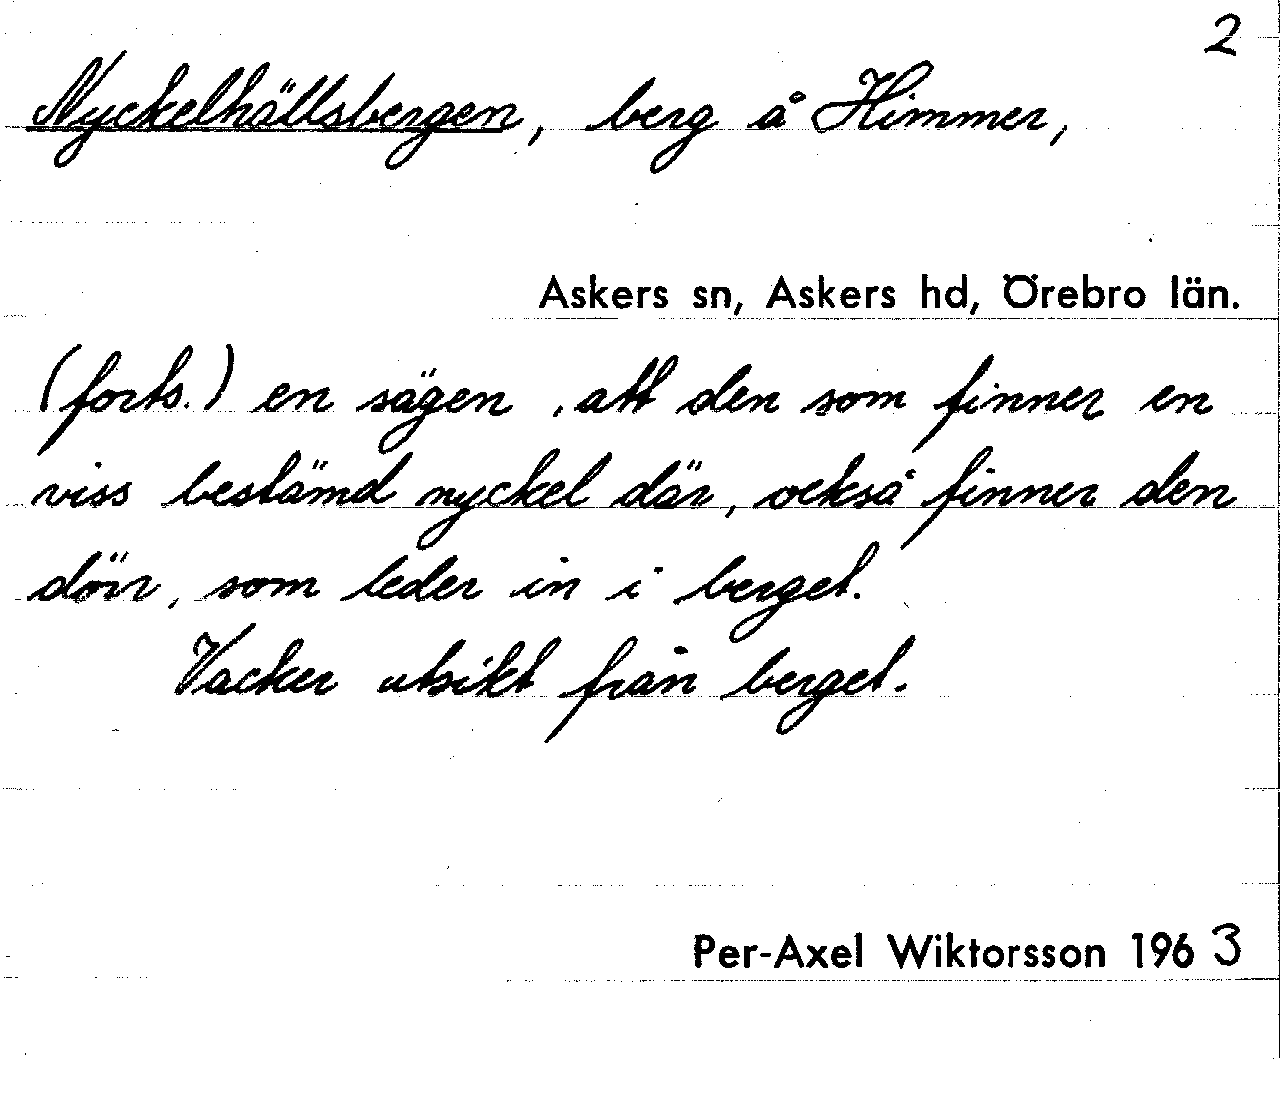 2
Nyckelhällsbergen, berg å Himmer,
Askers sn, Askers hd, Örebro län.
(forts.) en sägen, att den som finner en
viss bestämd nyckel där, också finner den
dörr, som leder in i berget.
Vacker utsikt från berget.
Per-Axel Wiktorsson 1963